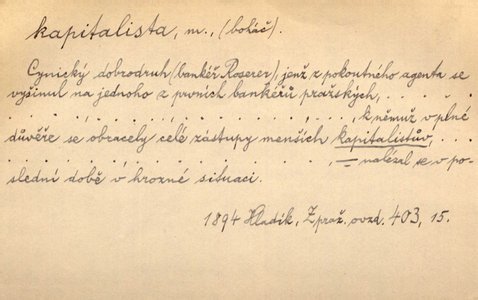 kapitalista, m., (boháč).
Cynický dobrodruh (bankéř Roserer), jenž z pokoutného agenta se
vyšinul na jednoho z prvních bankéřů pražských, . . . .
. . . . . . . . . . . . , k němuž v plné
důvěře se obracely celé zástupy menších kapitalistův, . . .
. . . . . . . . . . . . , — nalézal se v po-
slední době v hrozné situaci.
1894 Hladík, Z praž. ovzd. 403, 15.